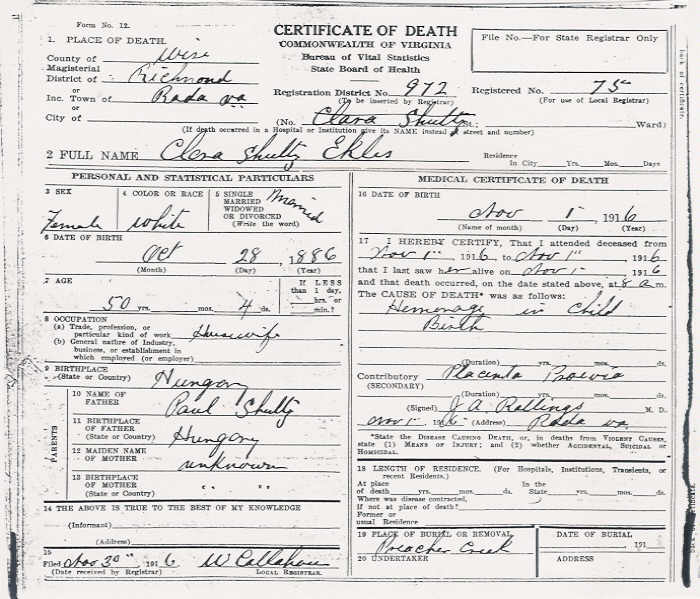 Form No. 12.
CERTIFICATE OF DEATH
COMMONWEALTH OF VIRGINIA
Bureau of Vital Statistics
State Board of Health
File No.—For State Registrar Only
1. PLACE OF DEATH.
County of Wise
Magisterial
District of Richmond
or
Inc. Town of Roda va
or
City of
Registration District No. 972
(To be inserted by Registrar)
Registered No. 75
(For use of Local Registrar)
(No. Clara Shultz St.; Ward)
(If death occurred in a Hospital or Institution give its NAME instead of street and number)
2 FULL NAME Clera Shultz Ekles
Residence
In City Yrs. Mos. Days
PERSONAL AND STATISTICAL PARTICULARS
3 SEX
Female
4 COLOR OR RACE
White
5 SINGLE
MARRIED
WIDOWED
OR DIVORCED
(Write the word)
Married
6 DATE OF BIRTH
Oct 28, 1886
(Month) (Day) (Year)
7 AGE
50 yrs. mos. 4 ds.
If LESS
than 1 day,
hrs. or
min.?
8 OCCUPATION
(a) Trade, profession, or
particular kind of work Husewife
(b) General nature of Industry,
business, or establishment in
which employed (or employer)
9 BIRTHPLACE
(State or Country) Hungory
PARENTS
10 NAME OF
FATHER Paul Shultz
11 BIRTHPLACE
OF FATHER
(State or Country) Hungory
12 MAIDEN NAME
OF MOTHER unknown
13 BIRTHPLACE
OF MOTHER " "
(State or Country)
14 THE ABOVE IS TRUE TO THE BEST OF MY KNOWLEDGE
(Informant)
(Address)
15
Filed Nov 30", 1916 W Callahan
(Date received by Registrar) LOCAL REGISTRAR.
MEDICAL CERTIFICATE OF DEATH
16 DATE OF BIRTH
Nov 1, 1916
(Name of month) (Day) (Year)
17 I HEREBY CERTIFY, That I attended deceased from
Nov 1", 1916 to Nov 1", 1916
that I last saw her alive on Nov 1, 1916
and that death occurred, on the date stated above, at 8 a m.
The CAUSE OF DEATH* was as follows:
Hemorage in Child
Birth
(Duration) yrs. mos. ds.
Contributory Placenta Proevia
(SECONDARY)
(Duration) yrs. mos. ds.
(Signed) J A. Rallings M. D.
Nov 1", 1916 (Address) Roda va.
*State the DISEASE CAUSING DEATH, or, in deaths from VIOLENT CAUSES,
state (1) MEANS OF INJURY; and (2) whether ACCIDENTAL, SUICIDAL or
HOMICIDAL.
18 LENGTH OF RESIDENCE. (For Hospitals, Institutions, Transients, or
recent Residents.)
At place In the
of death yrs. mos. ds. State yrs. mos. ds.
Where was disease contracted,
if not at place of death?
Former or
usual Residence
19 PLACE OF BURIAL OR REMOVAL
Preacher Creek
DATE OF BURIAL
191
20 UNDERTAKER
ADDRESS
back of certificate.